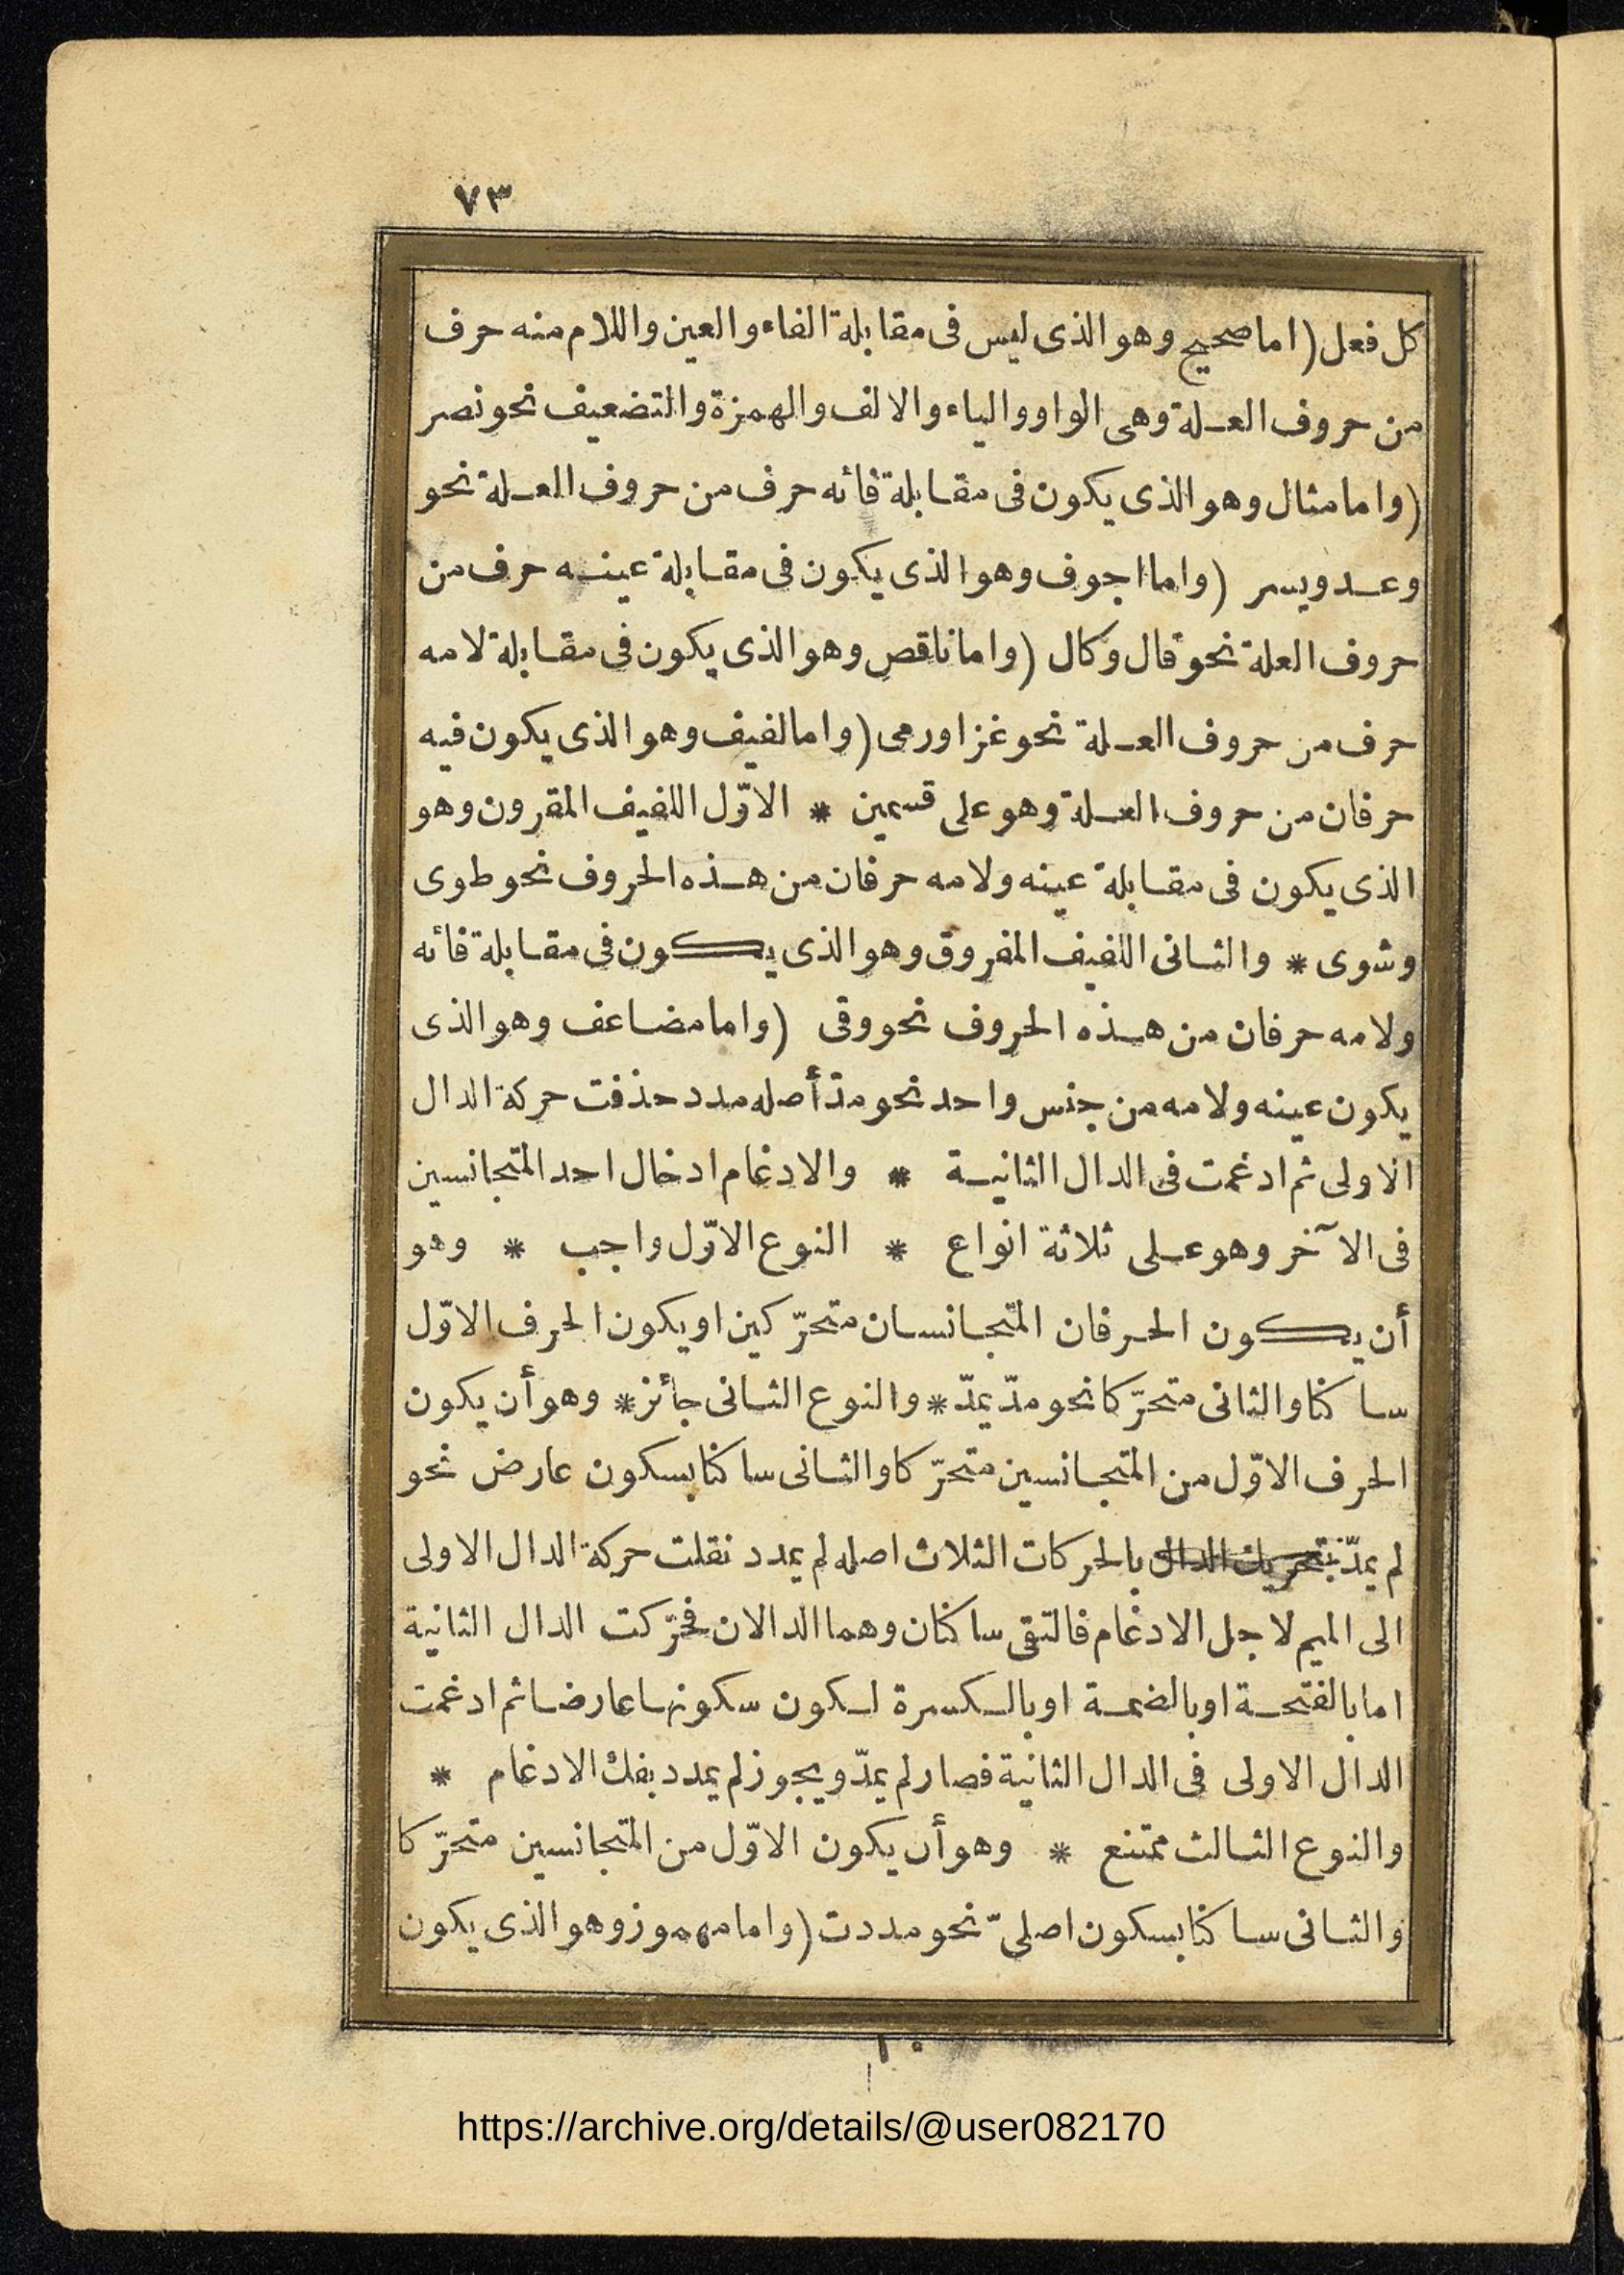 ٧٣
كل فعل (اما صحيح وهو الذى ليس فى مقابلة الفاء والعين واللام منه حرف
من حروف العلة وهى الواو والياء والالف والهمزة والتضعيف نحو نصر
(واما مثال وهو الذى يكون فى مقابلة فائه حرف من حروف العلة نحو
وعد ويسر (واما اجوف وهو الذى يكون فى مقابلة عينه حرف من
حروف العلة نحو قال وكال (واما ناقص وهو الذى يكون فى مقابلة لامه
حرف من حروف العلة نحو غزا ورمى (واما لفيف وهو الذى يكون فيه
حرفان من حروف العلة وهو على قسمين * الاوّل اللفيف المقرون وهو
الذى يكون فى مقابلة عينه ولامه حرفان من هذه الحروف نحو طوى
وشوى * والثانى اللفيف المفروق وهو الذى يكون فى مقابلة فائه
ولامه حرفان من هذه الحروف نحو وقى (واما مضاعف وهو الذى
يكون عينه ولامه من جنس واحد نحو مدّ أصله مدد حذفت حركة الدال
الاولى ثم ادغمت فى الدال الثانية * والادغام ادخال احد المتجانسين
فى الآخر وهو على ثلاثة انواع * النوع الاوّل واجب * وهو
أن يكون الحرفان المتجانسان متحرّكين او يكون الحرف الاوّل
ساكنا والثانى متحرّكا نحو مدّ يمدّ * والنوع الثانى جائز * وهو أن يكون
الحرف الاوّل من المتجانسين متحرّكا والثانى ساكنا بسكون عارض نحو
لم يمدّ بتحريك الدال بالحركات الثلاث اصله لم يمدد نقلت حركة الدال الاولى
الى الميم لاجل الادغام فالتقى ساكنان وهما الدالان فحرّكت الدال الثانية
اما بالفتحة او بالضمة او بالكسرة لكون سكونها عارضا ثم ادغمت
الدال الاولى فى الدال الثانية فصار لم يمدّ ويجوز لم يمدد بفك الادغام *
والنوع الثالث ممتنع * وهو أن يكون الاوّل من المتجانسين متحرّكا
والثانى ساكنا بسكون اصلىّ نحو مددت (واما مهموز وهو الذى يكون
١٠
https://archive.org/details/@user082170